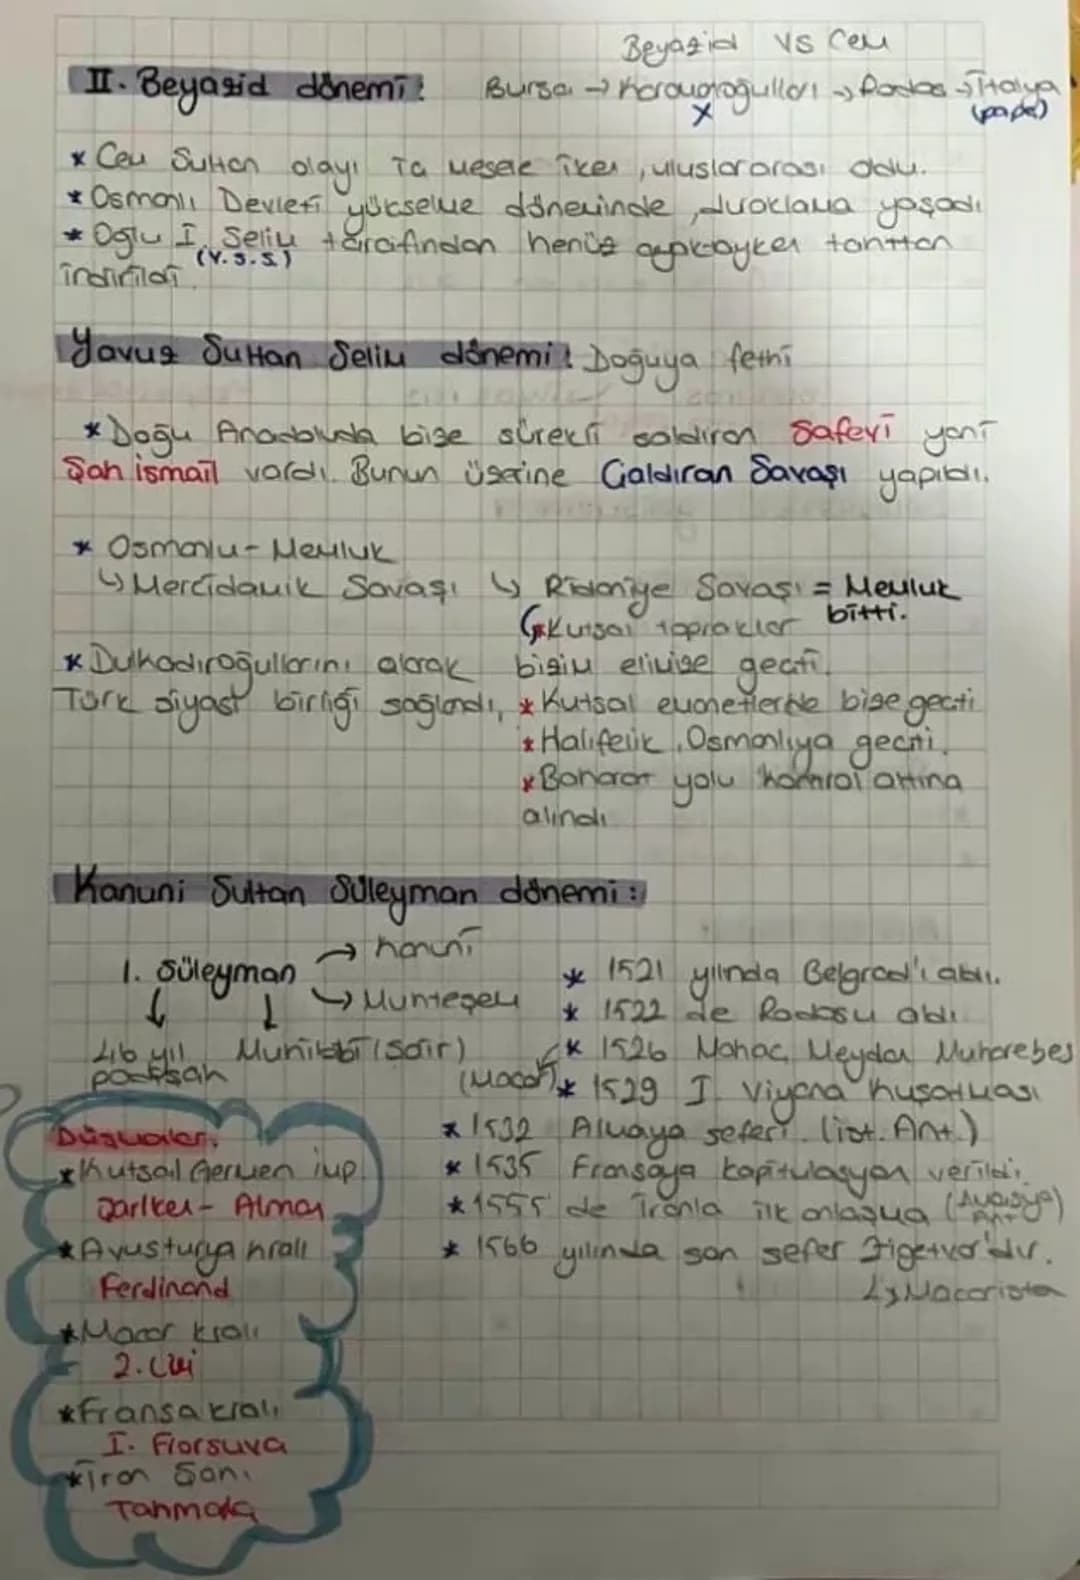 Beyazid vs Cem
II. Beyazid dönemi: Bursa → Karamanoğulları → Rodos → İtalya
x (papa)
* Cem Sultan olayı iç mesele iken, uluslararası oldu.
* Osmanlı Devleti yükselme döneminde, duraklama yaşadı
* Oğlu I. Selim tarafından henüz ayaktayken tahttan
(Y.S.S)
indirildi.
Yavuz Sultan Selim dönemi: Doğuya fethi
* Doğu Anadoluda bize sürekli saldıran Safevi yani
Şah ismail vardı. Bunun üzerine Çaldıran Savaşı yapıldı.
* Osmanlu - Memluk
↳ Mercidabık Savaşı ↳ Ridaniye Savaşı = Memluk
bitti.
* Kutsal topraklar
* Dulkadiroğullarını alarak bizim elimize geçti.
Türk siyasi birliği sağlandı, * Kutsal emanetlerde bize geçti
* Halifelik Osmanlıya geçti.
* Baharat yolu kontrol altına
alındı
Kanuni Sultan Süleyman dönemi:
→ kanuni
1. Süleyman * 1521 yılında Belgrad'ı aldı.
↳ Muhteşem * 1522 de Rodosu aldı
46 yıl Muhibbi (Şair) * 1526 Mohaç Meydan Muharebes
padişah (Macar) * 1529 I. Viyana kuşatması
Düşmanları: * 1532 Almaya seferi. (ist. Ant.)
* Kutsal Germen imp. * 1535 Fransaya kapitulasyon verildi.
Şarlken - Alman * 1555 de İranla ilk anlaşma (Amasya Ant)
* Avusturya kralı * 1566 yılında son sefer Zigetvar'dır.
Ferdinand ↳ Macaristan
* Macar kralı
2. Lui
* Fransa kralı
I. Fransuva
* İran Şahı
Tahmasb